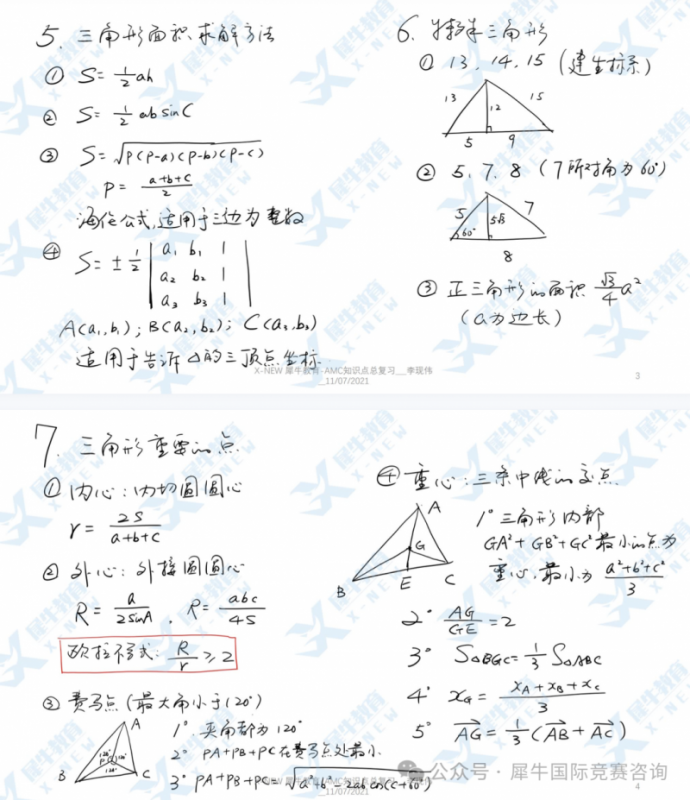 5. 三角形面积求解方法
① S=½ah
② S=½absinC
③ S=√(P(P-a)(P-b)(P-c))
P=(a+b+c)/2
海伦公式,适用于三边为整数
④ S=±½ |a₁ b₁ 1|
|a₂ b₂ 1|
|a₃ b₃ 1|
A(a₁,b₁); B(a₂,b₂); C(a₃,b₃)
适用于告诉△的三顶点坐标
6. 特殊三角形
① 13, 14, 15 (建坐标系)
13 12 15
5 9
② 5, 7, 8 (7所对角为60°)
5 7
60°
8
③ 正三角形的面积 √3/4 a²
(a为边长)
X-NEW 犀牛教育-AMC知识点总复习__李现伟
_11/07/2021
3
7. 三角形重要的点
① 内心:内切圆圆心
r=2S/(a+b+c)
② 外心:外接圆圆心
R=a/(2sinA), R=abc/(4S)
欧拉不等式: R/r≥2
③ 费马点(最大角小于120°)
A
P 120° 120° 120°
B C
1° 夹角都为120°
2° PA+PB+PC在费马点处最小
3° PA+PB+PC=√(a²+b²-2abcos(c+60°))
④ 重心:三条中线的交点
A
G
B E C
1° 三角形内部
GA²+GB²+GC²最小的点为
重心,最小为 (a²+b²+c²)/3
2° AG/GE=2
3° S△BGC=⅓S△ABC
4° x_G=(x_A+x_B+x_C)/3
5° AG→=⅓(AB→+AC→)
_11/07/2021
4
公众号·犀牛国际竞赛咨询
犀牛教育
X-NEW